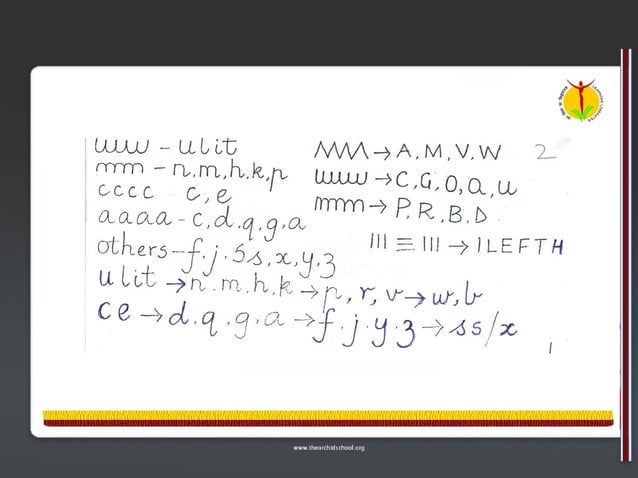 uuw - u l i t
mm - n, m, h, k, p
cccc c, e
aaaa - c, d, q, g, a
others - f. j. Ss, x, y, z
u l i t → n. m. h. k → p, r, v → w, b
c e → d. q. g. a → f. j. y. z → ss/x
MM → A, M, V, W 2
uuw → C, G, O, Q, U
mm → P, R, B, D
||| ≡ ||| → I L E F T H
1
www.theorchidschool.org